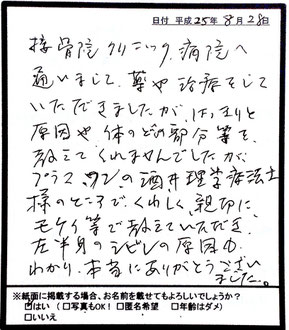 日付 平成25年8月28日
接骨院 クリニック 病院へ
通いまして、薬や治療をして
いただきましたが、はっきりと
原因や、体のどの部分等を、
教えてくれませんでしたが、
プラス、ワンの酒井理学療法士
様のところで、くわしく、親切に、
モケイ等で教えていただき、
左半身のシビレの原因が
わかり、本当にありがとうござい
ました。
※紙面に掲載する場合、お名前を載せてもよろしいでしょうか？
はい （□写真もOK！ □匿名希望 □年齢はダメ）
□いいえ